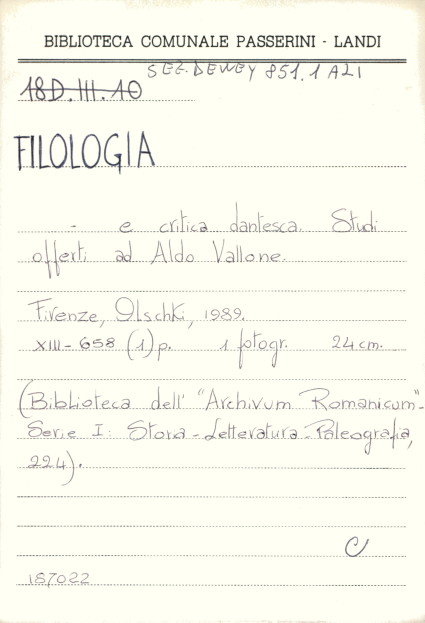 BIBLIOTECA COMUNALE PASSERINI - LANDI
SEZ. DEWEY 851.1 ALI
18D.III.10
FILOLOGIA
- e critica dantesca. Studi
offerti ad Aldo Vallone.
Firenze, Olschki, 1989.
XIII-658 (1) p. 1 fotogr. 24 cm.
(Biblioteca dell' "Archivum Romanicum"-
Serie I: Storia-Letteratura-Paleografia,
224).
C
187022